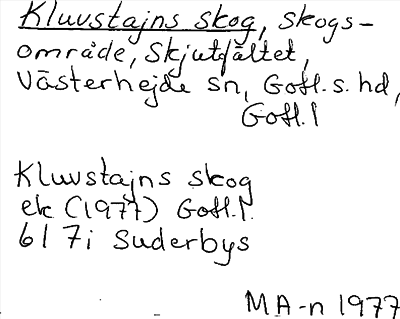 Kluvstajns skog, skogs-
område, Skjutfältet,
Västerhejde sn, Gotl. s. hd,
Gotl. l
Kluvstajns skog
ek (1977) Gotl. l.
6I 7i Suderbys
MA-n 1977